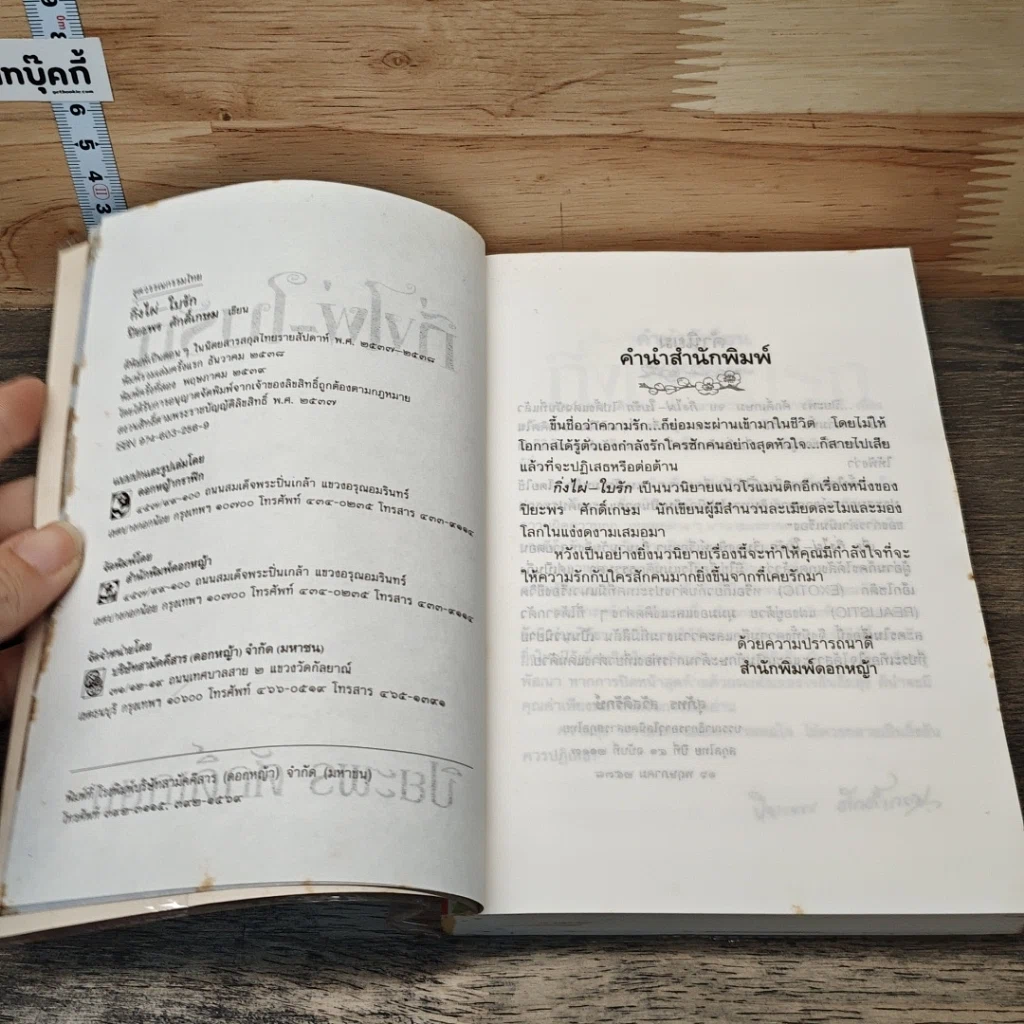 ทบุ๊คกี้
6
5
4
3
ชุดวรรณกรรมไทย
กิ่งไผ่-ใบรัก
ปิยะพร ศักดิ์เกษม เขียน
ตีพิมพ์เป็นตอน ๆ ในนิตยสารสกุลไทยรายสัปดาห์ พ.ศ. ๒๕๓๗-๒๕๓๘
พิมพ์รวมเล่มครั้งแรก ธันวาคม ๒๕๓๘
พิมพ์ครั้งที่สอง พฤษภาคม ๒๕๓๙
โดยได้รับการอนุญาตจัดพิมพ์จากเจ้าของลิขสิทธิ์ถูกต้องตามกฎหมาย
สงวนลิขสิทธิ์ตามพระราชบัญญัติลิขสิทธิ์ พ.ศ. ๒๕๓๗
ISBN 974-603-256-9
แบบปกและรูปเล่มโดย
ดอกหญ้ากราฟิก
๔๕๓/๙๙-๑๐๐ ถนนสมเด็จพระปิ่นเกล้า แขวงอรุณอมรินทร์
เขตบางกอกน้อย กรุงเทพฯ ๑๐๗๐๐ โทรศัพท์ ๔๓๔-๐๒๓๕ โทรสาร ๔๓๓-๙๑๑๔
จัดพิมพ์โดย
สำนักพิมพ์ดอกหญ้า
๔๕๓/๙๙-๑๐๐ ถนนสมเด็จพระปิ่นเกล้า แขวงอรุณอมรินทร์
เขตบางกอกน้อย กรุงเทพฯ ๑๐๗๐๐ โทรศัพท์ ๔๓๔-๐๒๓๕ โทรสาร ๔๓๓-๙๑๑๔
จัดจำหน่ายโดย
บริษัทสามัคคีสาร (ดอกหญ้า) จำกัด (มหาชน)
๓๑/๑๒-๑๙ ถนนเทศบาลสาย ๒ แขวงวัดกัลยาณ์
เขตธนบุรี กรุงเทพฯ ๑๐๖๐๐ โทรศัพท์ ๔๖๖-๐๕๑๙ โทรสาร ๔๖๕-๑๓๙๑
พิมพ์ที่ โรงพิมพ์บริษัทสามัคคีสาร (ดอกหญ้า) จำกัด (มหาชน)
โทรศัพท์ ๓๙๒-๓๑๑๕, ๓๙๒-๑๕๖๙
คำนำสำนักพิมพ์
ขึ้นชื่อว่าความรัก...ก็ย่อมจะผ่านเข้ามาในชีวิต โดยไม่ให้
โอกาสได้รู้ตัวเองกำลังรักใครซักคนอย่างสุดหัวใจ...ก็สายไปเสีย
แล้วที่จะปฏิเสธหรือต่อต้าน
กิ่งไผ่-ใบรัก เป็นนวนิยายแนวโรแมนติกอีกเรื่องหนึ่งของ
ปิยะพร ศักดิ์เกษม นักเขียนผู้มีสำนวนละเมียดละไมและมอง
โลกในแง่งดงามเสมอมา
หวังเป็นอย่างยิ่งนวนิยายเรื่องนี้จะทำให้คุณมีกำลังใจที่จะ
ให้ความรักกับใครสักคนมากยิ่งขึ้นจากที่เคยรักมา
ด้วยความปรารถนาดี
สำนักพิมพ์ดอกหญ้า